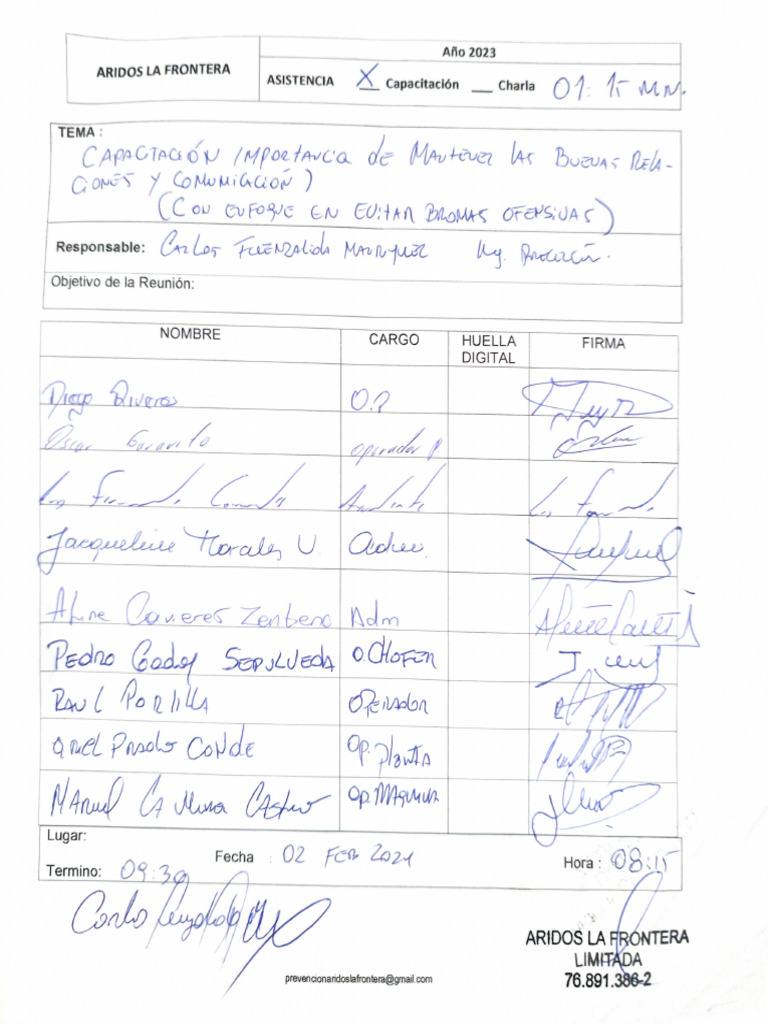 Año 2023
ARIDOS LA FRONTERA
ASISTENCIA X Capacitación ___ Charla 01:15 MN.
TEMA :
CAPACTACIÓN IMPORTANCIA DE MANTENER LAS BUENAS RELA-
CIONES Y COMUNICACIÓN)
(CON ENFOQUE EN EVITAR BROMAS OFENSIVAS)
Responsable: Carlos Fuenzalida Manriquez Ing.
Objetivo de la Reunión:
NOMBRE CARGO HUELLA DIGITAL FIRMA
Diego Riveros O.P
Oscar Garavito operador P.
Luis Fernando
Jacqueline Morales U Adm.
Aline Cavieres Zenteno Adm
PEDRO Godoy SEPULVEDA O.CHOFER
RAUL PORTILLA OPERADOR
ariel Prado CONDE Op. planta
MANUEL CASTRO Op. MAQUINA
Lugar:
Fecha : 02 FEB 2024 Hora : 08:15
Termino: 09:30
ARIDOS LA FRONTERA
LIMITADA
76.891.386-2
prevencionaridoslafrontera@gmail.com